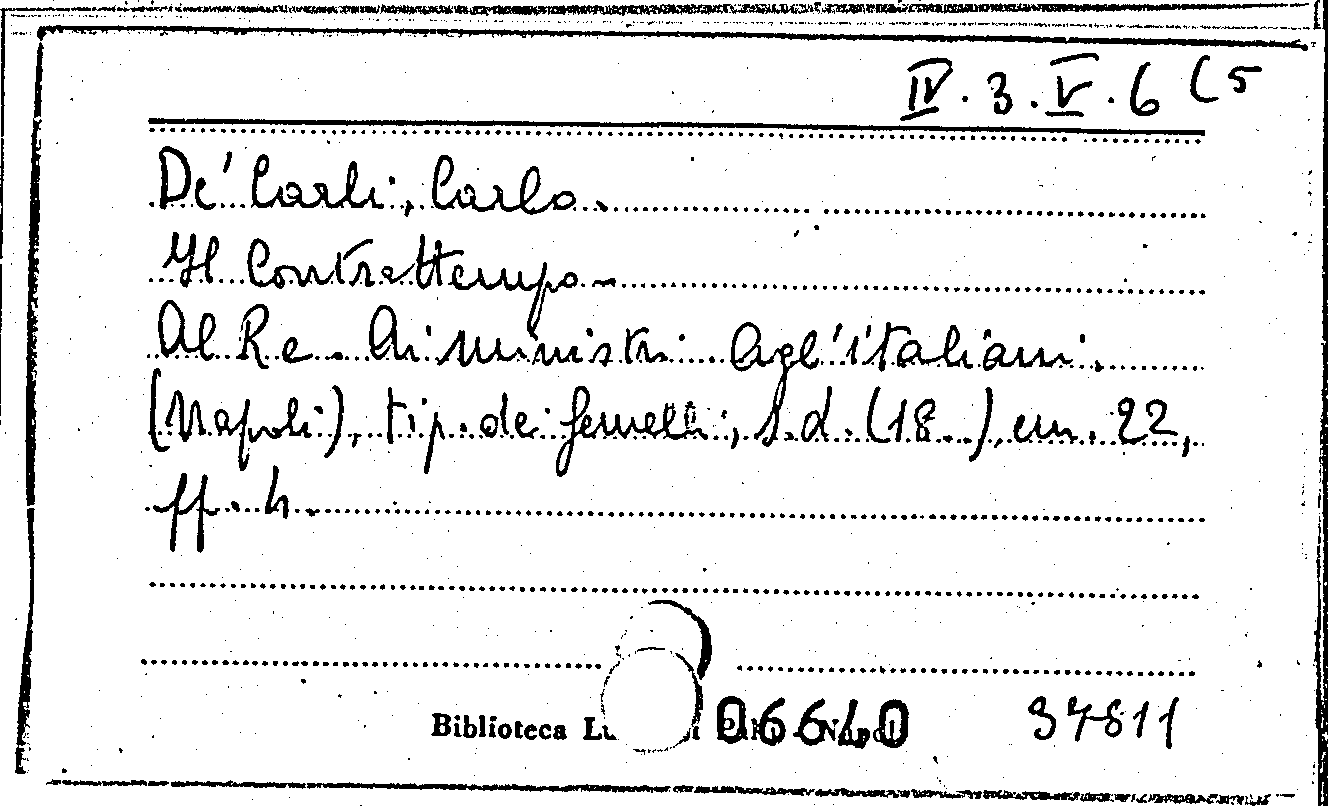 IV.3.V.6 (5
De' Carli, Carlo.
Il Contrattempo -
Al Re. Ai Ministri. Agl'italiani.
(Napoli), tip. dei Gemelli, s.d. (18..), cm. 22,
ff. 4.
Biblioteca 06640 37811